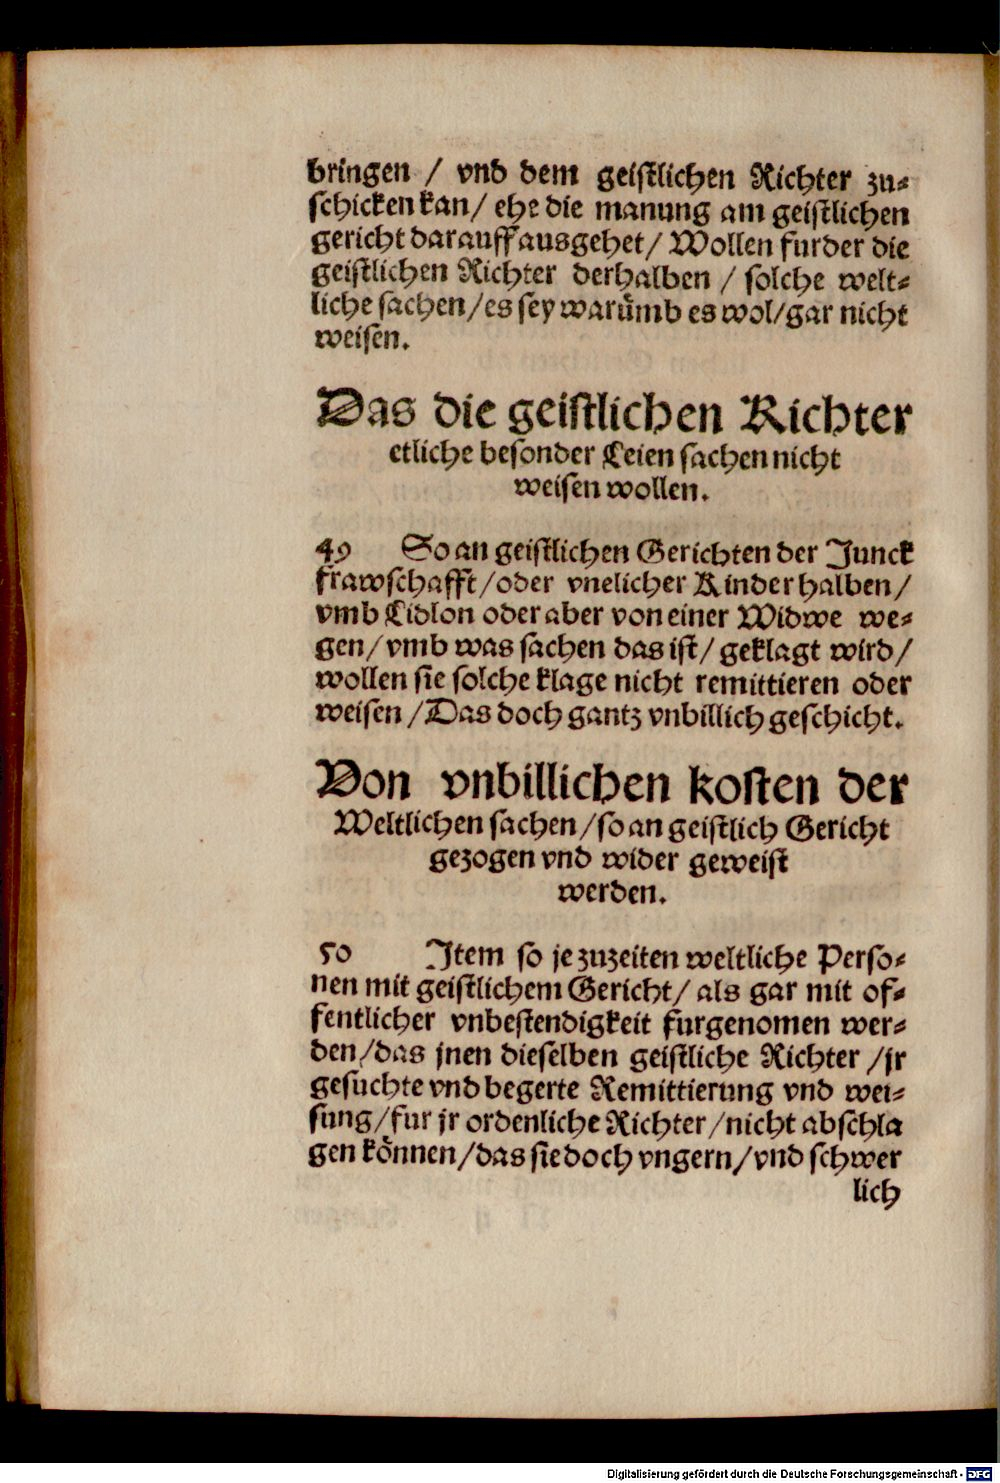 bringen / vnd dem geistlichen Richter zu-
schicken kan/ ehe die manung am geistlichen
gericht darauff ausgehet/ Wollen furder die
geistlichen Richter derhalben / solche welt-
liche sachen/es sey warůmb es wol/gar nicht
weisen.
Das die geistlichen Richter
etliche besonder Leien sachen nicht
weisen wollen.
49 So an geistlichen Gerichten der Junck
frawschafft/oder vnelicher Kinder halben/
vmb Lidlon oder aber von einer Widwe we-
gen/ vmb was sachen das ist/ geklagt wird/
wollen sie solche klage nicht remittieren oder
weisen /Das doch gantz vnbillich geschicht.
Von vnbillichen kosten der
Weltlichen sachen/so an geistlich Gericht
gezogen vnd wider geweist
werden.
50 Item so je zuzeiten weltliche Perso-
nen mit geistlichem Gericht/ als gar mit of-
fentlicher vnbestendigkeit furgenomen wer-
den/das jnen dieselben geistliche Richter /jr
gesuchte vnd begerte Remittierung vnd wei-
sung/fur jr ordenliche Richter/nicht abschla
gen können/das sie doch vngern/vnd schwer
lich
Digitalisierung gefördert durch die Deutsche Forschungsgemeinschaft - DFG